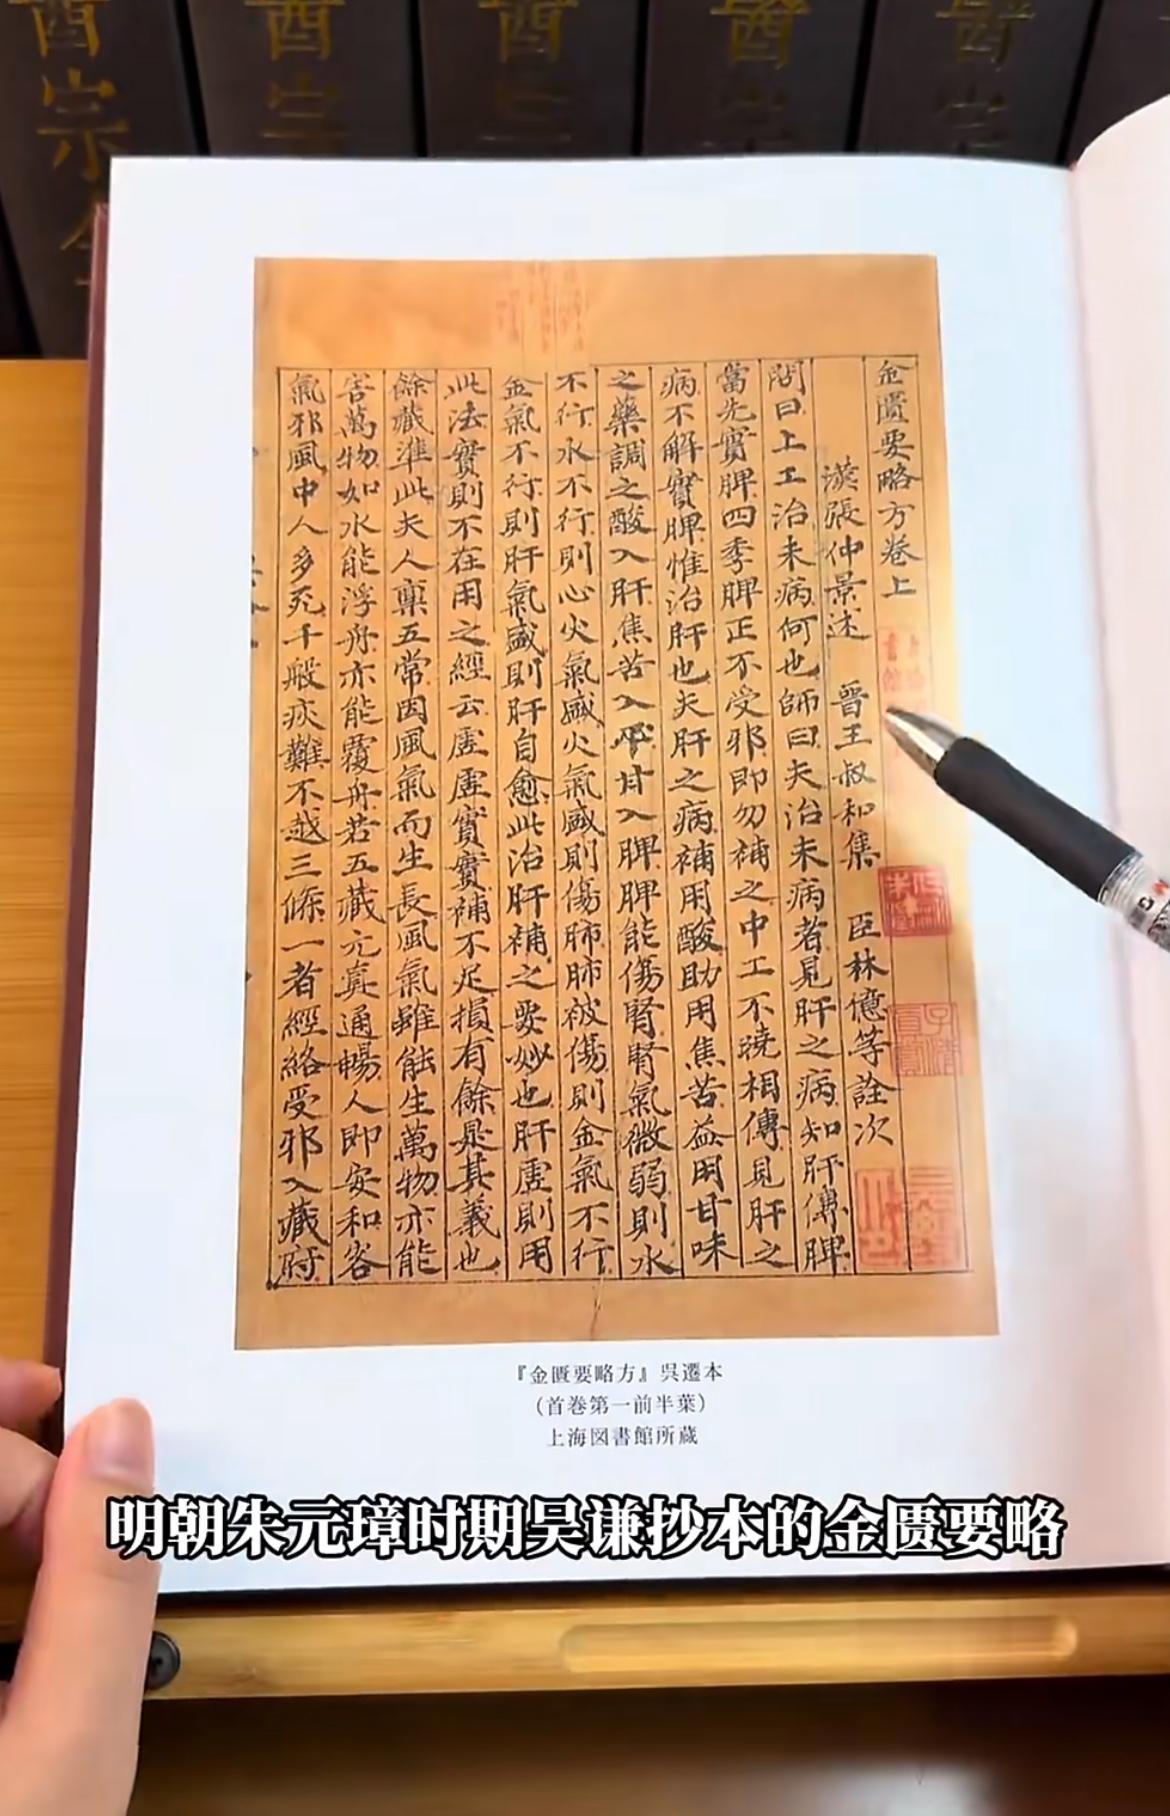 金匱要略方卷上
漢張仲景述 晉王叔和集 臣林億等詮次
問曰上工治未病何也師曰夫治未病者見肝之病知肝傳脾
當先實脾四季脾正不受邪即勿補之中工不曉相傳見肝之
病不解實脾惟治肝也夫肝之病補用酸助用焦苦益用甘味
之藥調之酸入肝焦苦入心甘入脾脾能傷腎腎氣微弱則水
不行水不行則心火氣盛火氣盛則傷肺肺被傷則金氣不行
金氣不行則肝氣盛則肝自愈此治肝補之要妙也肝虛則用
此法實則不在用之經云虛虛實實補不足損有餘是其義也
餘藏準此夫人稟五常因風氣而生長風氣雖能生萬物亦能
害萬物如水能浮舟亦能覆舟若五藏元真通暢人即安和客
氣邪風中人多死千般疢難不越三條一者經絡受邪入藏府
『金匱要略方』呉遷本
（首巻第一前半葉）
上海図書館所蔵
明朝朱元璋时期吴谦抄本的金匮要略